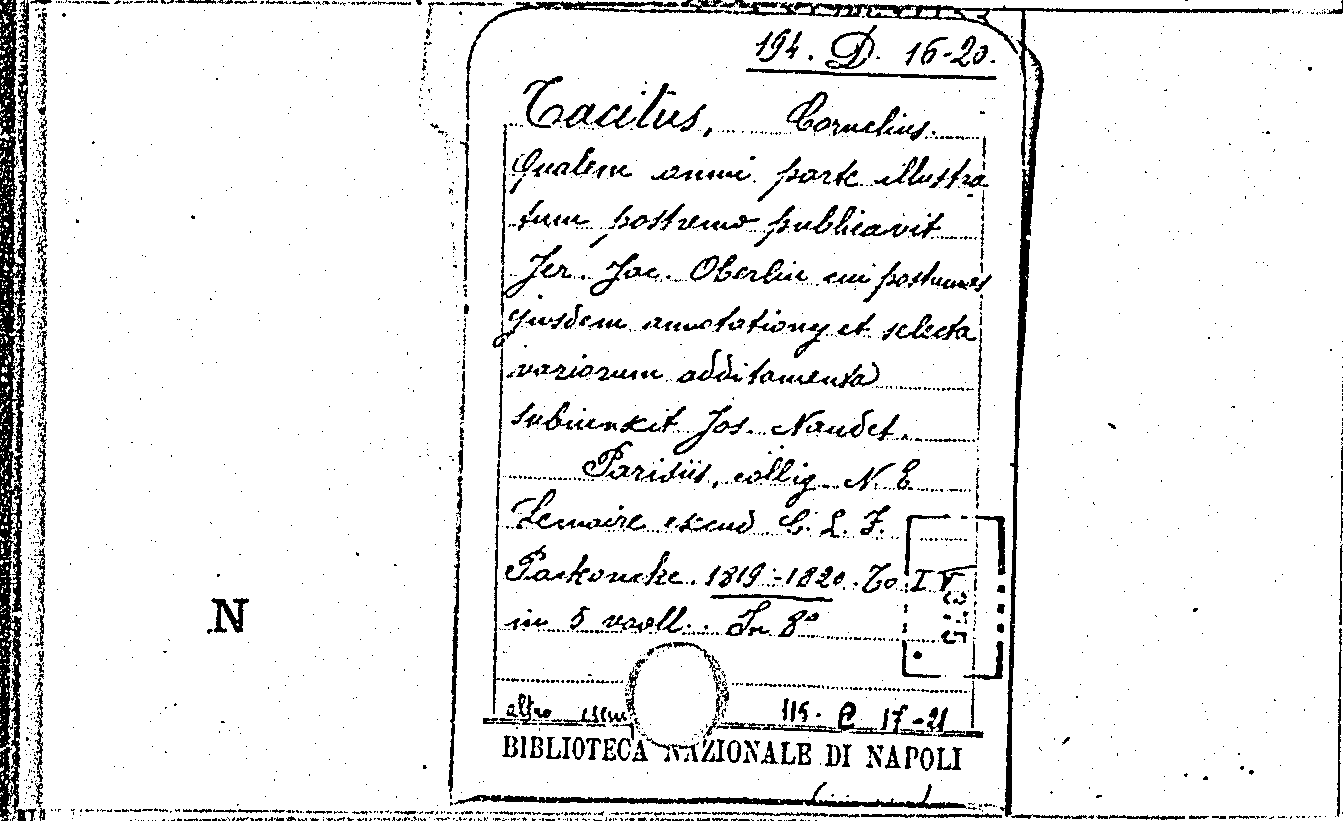 194. D. 16-20.
Tacitus, Cornelius.
Qualem omni parte illustra
tum postremo publicavit
Jer. Jac. Oberlin cui postumas
ejusdem annotationes et selecta
variorum additamenta
subiunxit Jos. Naudet.
Parisiis, collig. N. E.
Lemaire excud. C. L. F.
Packoucke. 1819-1820. To. IV
in 5 voll. In 8°
N
altro esem
115. C 17-21
BIBLIOTECA NAZIONALE DI NAPOLI